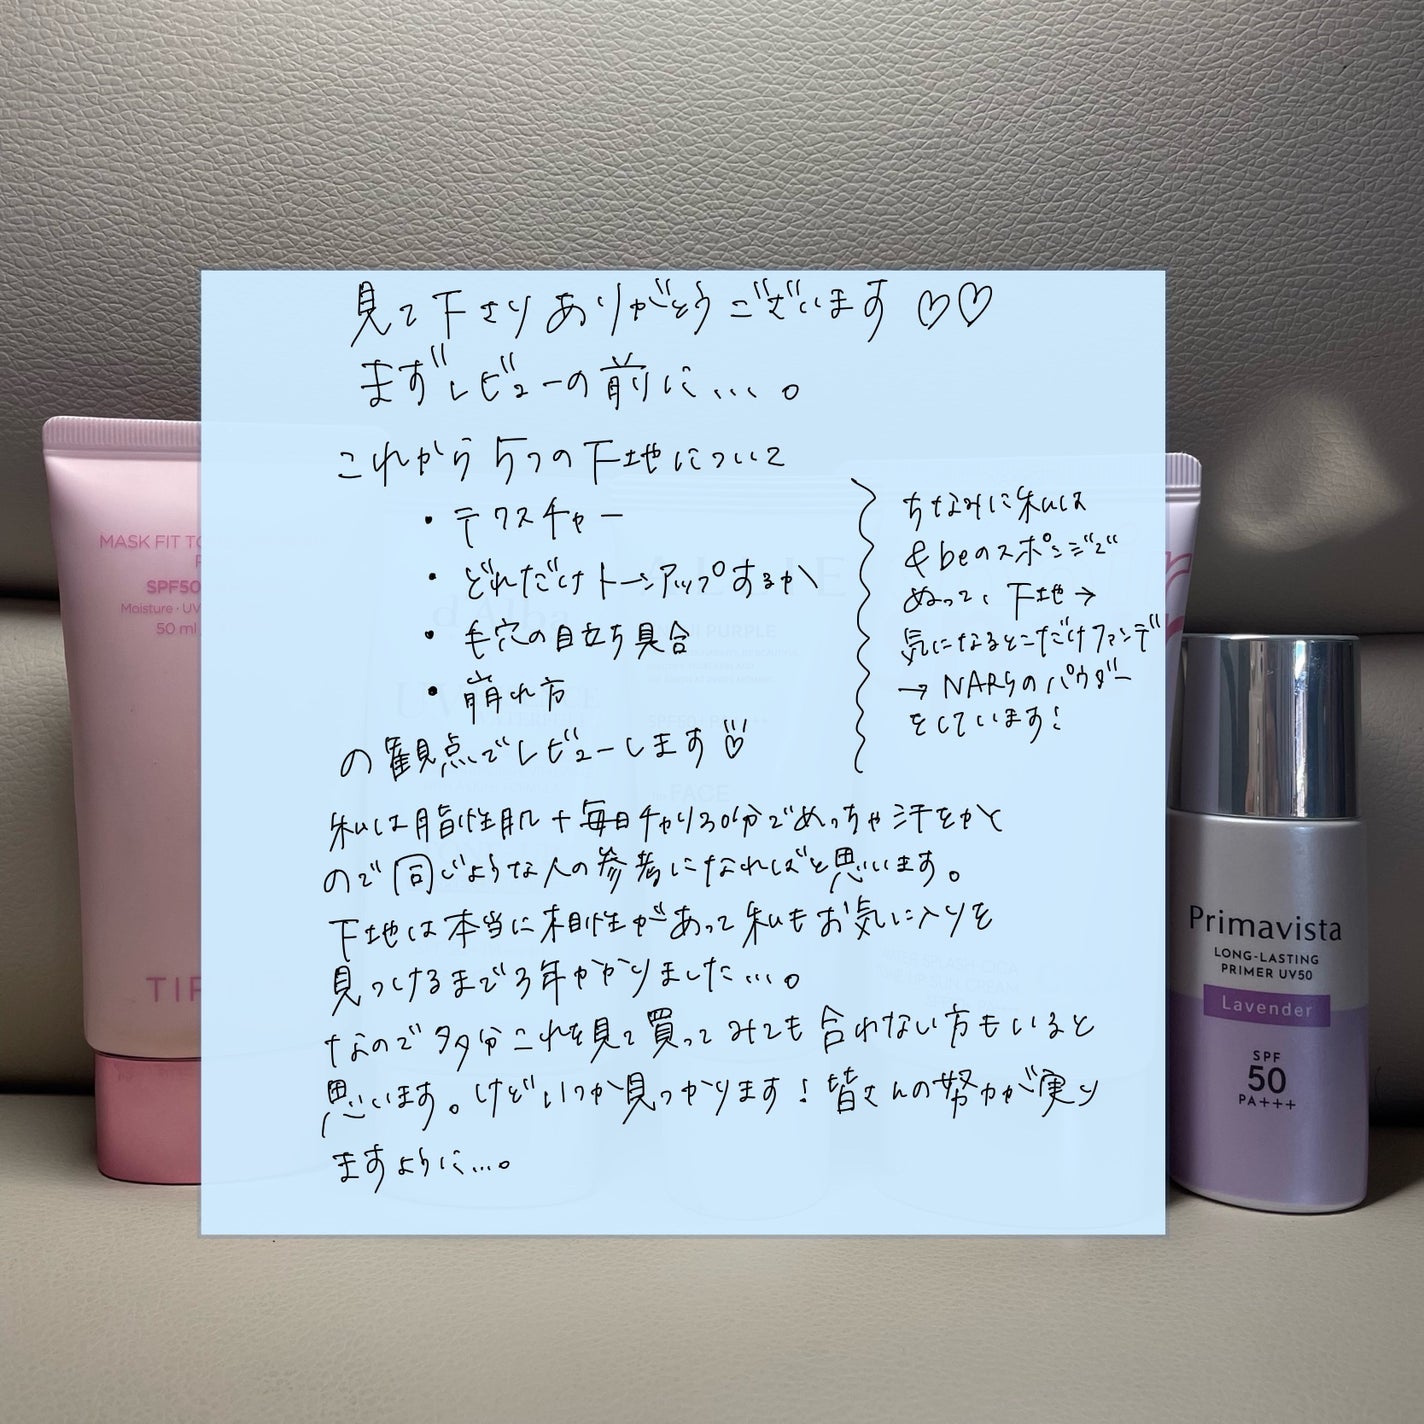 見て下さりありがとうございます♡♡
まずレビューの前に…。
これから5つの下地について
・テクスチャー
・どれだけトーンアップするか
・毛穴の目立ち具合
・崩れ方
の観点でレビューします♡
ちなみに私は
&beのスポンジで
ぬって、下地→
気になるとこだけファンデ
→NARSのパウダー
をしています!
私は脂性肌+毎日チャリ30分でめっちゃ汗をかく
ので同じような人の参考になればと思います。
下地は本当に相性があって私もお気に入りを
見つけるまで3年かかりました…。
なので多分これを見て買ってみても合わない方もいると
思います。けどいつか見つかります!皆さんの努力が実り
ますように…。
MASK FIT TO
SPF50
Moisture・UV
50 ml
TIR
d'Alba
PURPLE
FACE
Primavista
LONG-LASTING
PRIMER UV50
Lavender
SPF
50
PA+++